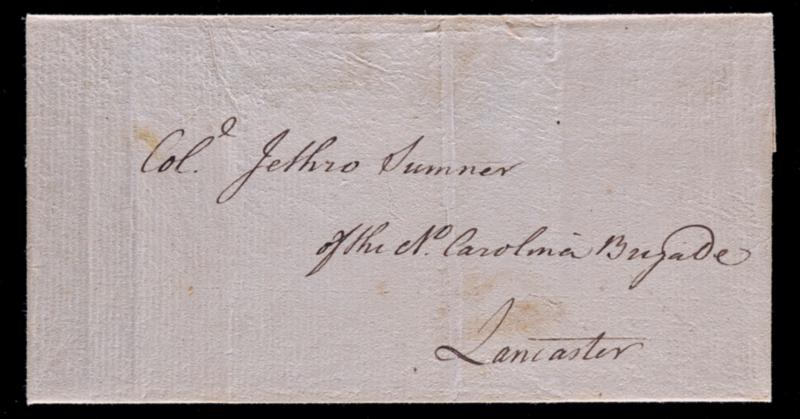 Col.d Jethro Sumner
of the No. Carolina Brigade
Lancaster